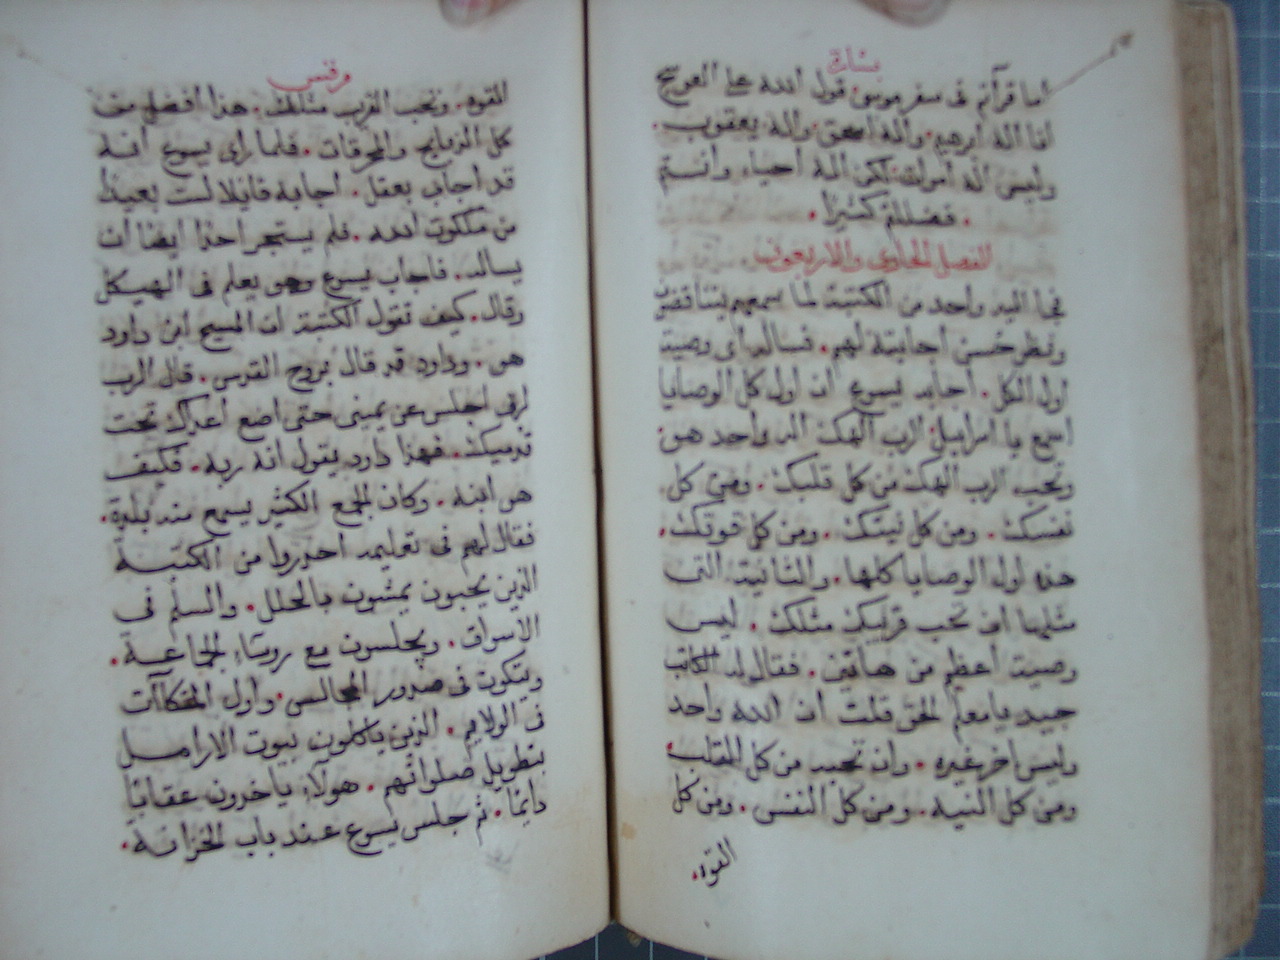 بشارة
اما قرأتم فى سفر موسى قول الله على العوسج
انا اله ابرهيم واله اسحق واله يعقوب.
وليس اله اموات لكن اله احياء وانتم
. فضللتم كثيرا .
الفصل الحادى والاربعون
فجا اليه واحد من الكتبة لما سمعهم يتناقضون
ونظر حُسن اجابتة لهم. فساله اى وصية
اول الكل. اجابه يسوع ان اول كل الوصايا
اسمع يا اسراييل الرب الهك اله واحد هو
وتحب الرب الهك من كل قلبك. ومن كل
نفسك. ومن كل نيتك. ومن كل قوتك.
هذه اول الوصايا كلها. والثانية التى
مثلها ان تحب قريبك مثلك. ليس
وصية اعظم من هاتين. فقال له الكاتب
جيد يا معلم الحق قلت ان الله واحد
وليس اخر غيره. وان تحبه من كل القلب
ومن كل النية. ومن كل النفس. ومن كل
القوه.
مرقس
القوه. وتحب القريب مثلك. هذا افضل من
كل الذبايح والمحرقات. فلما راى يسوع انه
قد اجاب بعقل. اجابه قايلا لست بعيدا
من ملكوت الله. فلم يستجر احدا ايضا ان
يساله. فاجاب يسوع وهو يعلم فى الهيكل
وقال. كيف تقول الكتبة ان المسيح ابن داود
هو. وداود قد قال بروح القدس. قال الرب
لربى اجلس عن يمينى حتى اضع اعداك تحت
قدميك. فهذا داود يقول انه ربه. فكيف
هو ابنه. وكان الجمع الكثير يسمع منه بلذة.
فقال لهم فى تعليمه احذروا من الكتبة
الذين يحبون يمشون بالحلل. والسلم فى
الاسواق. ويجلسون مع روساء الجماعة.
ويتكون فى صدور المجالس. واول المتكآت
فى الولايم. الذين ياكلون بيوت الارامل
بتطويل صلواتهم. هولاء ياخذون عقابا
دايما. ثم جلس يسوع عند باب الخزانة.